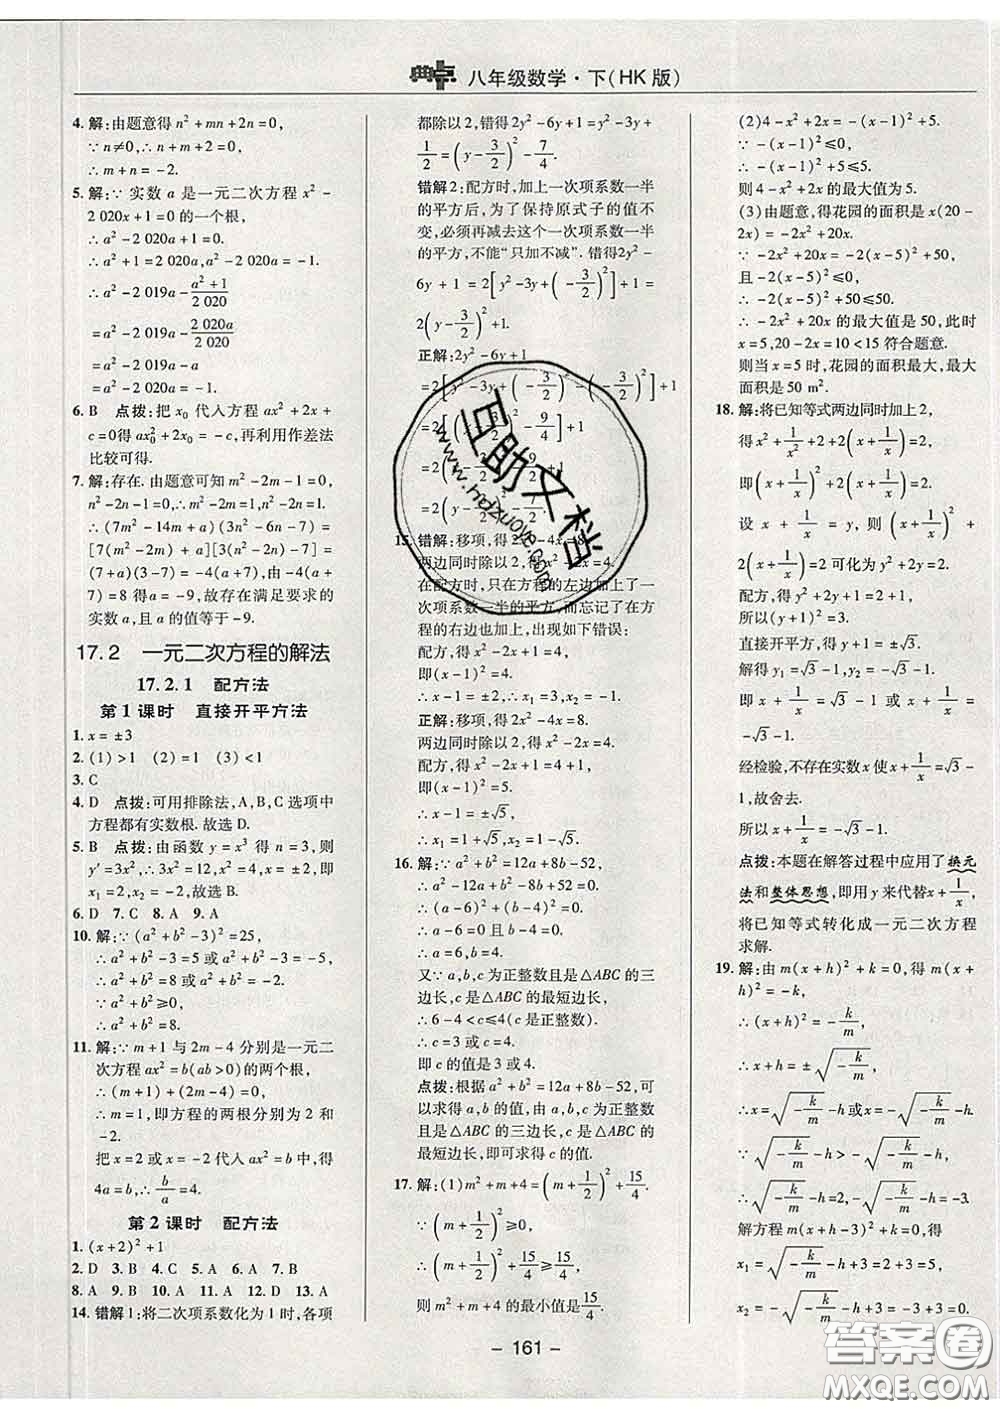 典点 八年级数学·下(HK版)
4. 解:由题意得n²+mn+2n=0,
∵n≠0,∴n+m+2=0,
∴m+n=-2.
5. 解:∵实数a是一元二次方程x²-
2 020x+1=0的一个根,
∴a²-2 020a+1=0.
∴a²+1=2 020a,a²-2 020a=-1.
∴a²-2 019a-(a²+1)/2 020
=a²-2 019a-2 020a/2 020
=a²-2 019a-a
=a²-2 020a=-1.
6. B 点拨:把x₀代入方程ax²+2x+
c=0得ax₀²+2x₀=-c,再利用作差法
比较可得.
7. 解:存在.由题意可知m²-2m-1=0,
n²-2n-1=0,∴m²-2m=1,n²-2n=1.
∴(7m²-14m+a)(3n²-6n-7)=
[7(m²-2m)+a][3(n²-2n)-7]=
(7+a)(3-7)=-4(a+7),由-4(a
+7)=8得a=-9,故存在满足要求的
实数a,且a的值等于-9.
17.2 一元二次方程的解法
17.2.1 配方法
第1课时 直接开平方法
1. x=±3
2. (1)>1 (2)=1 (3)<1
3. C
4. D 点拨:可用排除法,A,B,C选项中
方程都有实数根.故选D.
5. B 点拨:由函数y=x³得n=3,则
y′=3x²,∴3x²=12,x²=4,即x₁=2,
x₂=-2,故选B.
6. D 7. C 8. A 9. A
10. 解:∵(a²+b²-3)²=25,
∴a²+b²-3=5或a²+b²-3=-5.
∴a²+b²=8或a²+b²=-2.
∵a²+b²≥0,
∴a²+b²=8.
11. 解:∵m+1与2m-4分别是一元二
次方程ax²=b(ab>0)的两个根,
∴(m+1)+(2m-4)=0,
∴m=1,即方程的两根分别为2和
-2.
把x=2或x=-2代入ax²=b中,得
4a=b,∴b/a=4.
第2课时 配方法
1. (x+2)²+1
2. D 3. B 4. C 5. A 6. A 7. B
8. A 9. B 10. B 11. A 12. A 13. A
14. 错解1:将二次项系数化为1时,各项
都除以2,错得2y²-6y+1=y²-3y+
1/2=(y-3/2)²-7/4.
错解2:配方时,加上一次项系数一半
的平方后,为了保持原式子的值不
变,必须再减去这个一次项系数一半
的平方,不能“只加不减”.错得2y²-
6y+1=2[y²-3y+(-3/2)²]+1=
2(y-3/2)²+1.
正解:2y²-6y+1
15. 错解:移项,得2x²-4x=8.
两边同时除以2,得x²-2x=4.
在配方时,只在方程的左边加上了一
次项系数一半的平方,而忘记了在方
程的右边也加上,出现如下错误:
配方,得x²-2x+1=4,
即(x-1)²=4,
∴x-1=±2,∴x₁=3,x₂=-1.
正解:移项,得2x²-4x=8.
两边同时除以2,得x²-2x=4.
配方,得x²-2x+1=4+1,
即(x-1)²=5.
∴x-1=±√5,
∴x₁=1+√5,x₂=1-√5.
16. 解:∵a²+b²=12a+8b-52,
∴a²-12a+b²-8b+52=0.
∴(a-6)²+(b-4)²=0.
∴a-6=0,b-4=0
∴a=6,b=4.
又∵a,b,c为正整数且是△ABC的三
边长,c是△ABC的最短边长,
∴6-4<c≤4(c是正整数).
∴c=3或c=4.
即c的值是3或4.
点拨:根据a²+b²=12a+8b-52,可
以求得a,b的值,由a,b,c为正整数
且是△ABC的三边长,c是△ABC的最
短边长,即可求得c的值.
17. 解:(1)m²+m+4=(m+1/2)²+15/4.
∵(m+1/2)²≥0,
∴(m+1/2)²+15/4≥15/4.
则m²+m+4的最小值是15/4.
(2)4-x²+2x=-(x-1)²+5.
∵-(x-1)²≤0,
∴-(x-1)²+5≤5.
则4-x²+2x的最大值为5.
(3)由题意,得花园的面积是x(20-
2x)=-2x²+20x.
∵-2x²+20x=-2(x-5)²+50,
且-2(x-5)²≤0,
∴-2(x-5)²+50≤50.
∴-2x²+20x的最大值是50,此时
x=5,20-2x=10<15符合题意.
则当x=5时,花园的面积最大,最大
面积是50 m².
18. 解:将已知等式两边同时加上2,
得x²+1/x²+2+2(x+1/x)=2,
即(x+1/x)²+2(x+1/x)=2.
设x+1/x=y,则(x+1/x)²+
2(x+1/x)=2可化为y²+2y=2.
配方,得y²+2y+1=2+1,
所以(y+1)²=3.
直接开平方,得y+1=±√3.
解得y₁=√3-1,y₂=-√3-1.
即x+1/x=√3-1或x+1/x=
-√3-1.
经检验,不存在实数x使x+1/x=√3-
1,故舍去.
所以x+1/x=-√3-1.
点拨:本题在解答过程中应用了换元
法和整体思想,即用y来代替x+1/x,
将已知等式转化成一元二次方程
求解.
19. 解:由m(x+h)²+k=0,得m(x+
h)²=-k,
∴(x+h)²=-k/m,
∴x+h=±√(-k/m),
∴x=√(-k/m)-h或x=-√(-k/m)-h.
∵√(-k/m)-h>-√(-k/m)-h,
∴√(-k/m)-h=2,-√(-k/m)-h=-3.
解方程m(x+h-3)²+k=0,得
x₁=√(-k/m)-h+3=2+3=5,
x₂=-√(-k/m)-h+3=-3+3=0.
- 161 -
互助文档
www.hdzuoye.com
答案圈
MXQE.COM